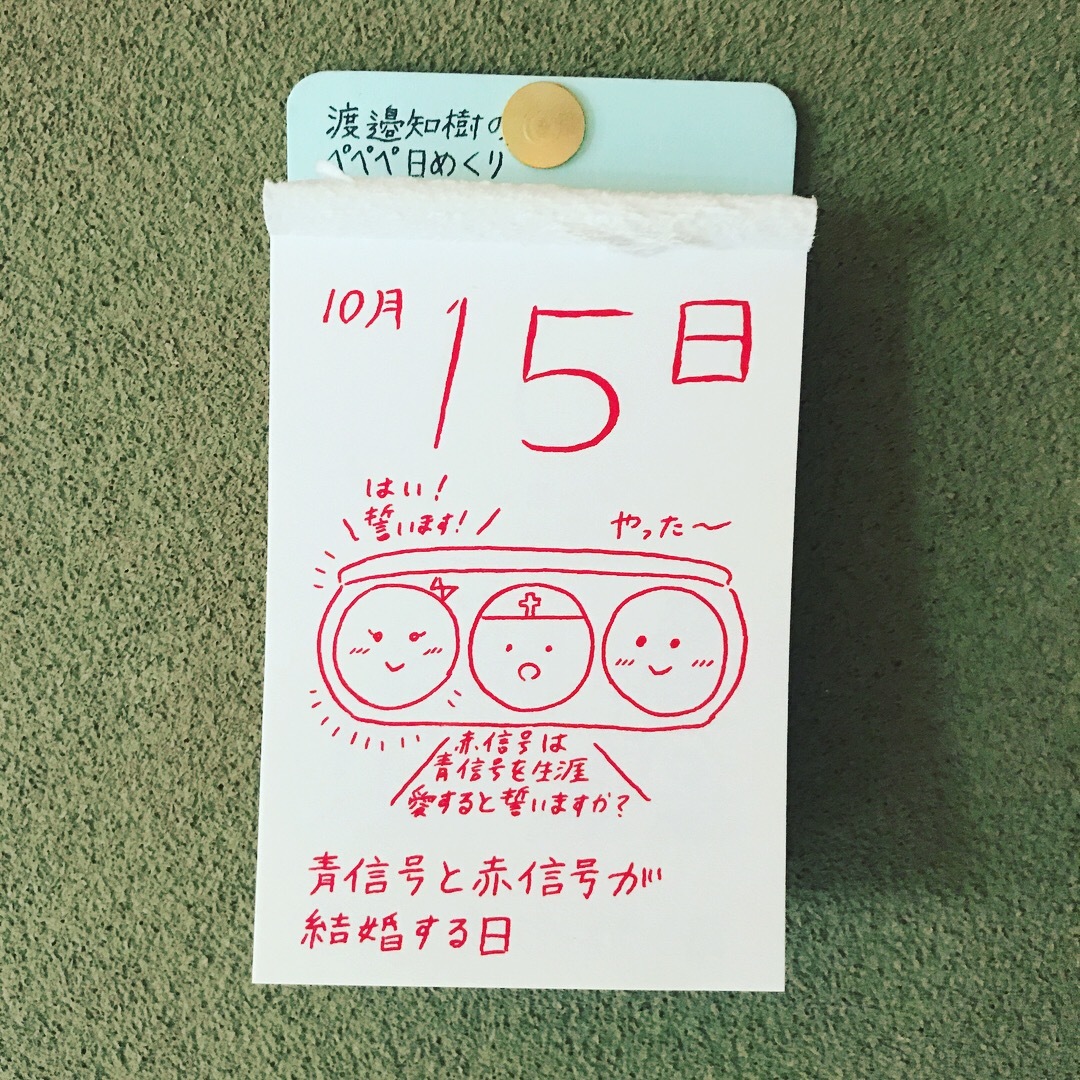 渡邉知樹の
ペペペ日めくり
10月
15日
はい!
誓います!
やった〜
赤信号は
青信号を生涯
愛すると誓いますか?
青信号と赤信号が
結婚する日